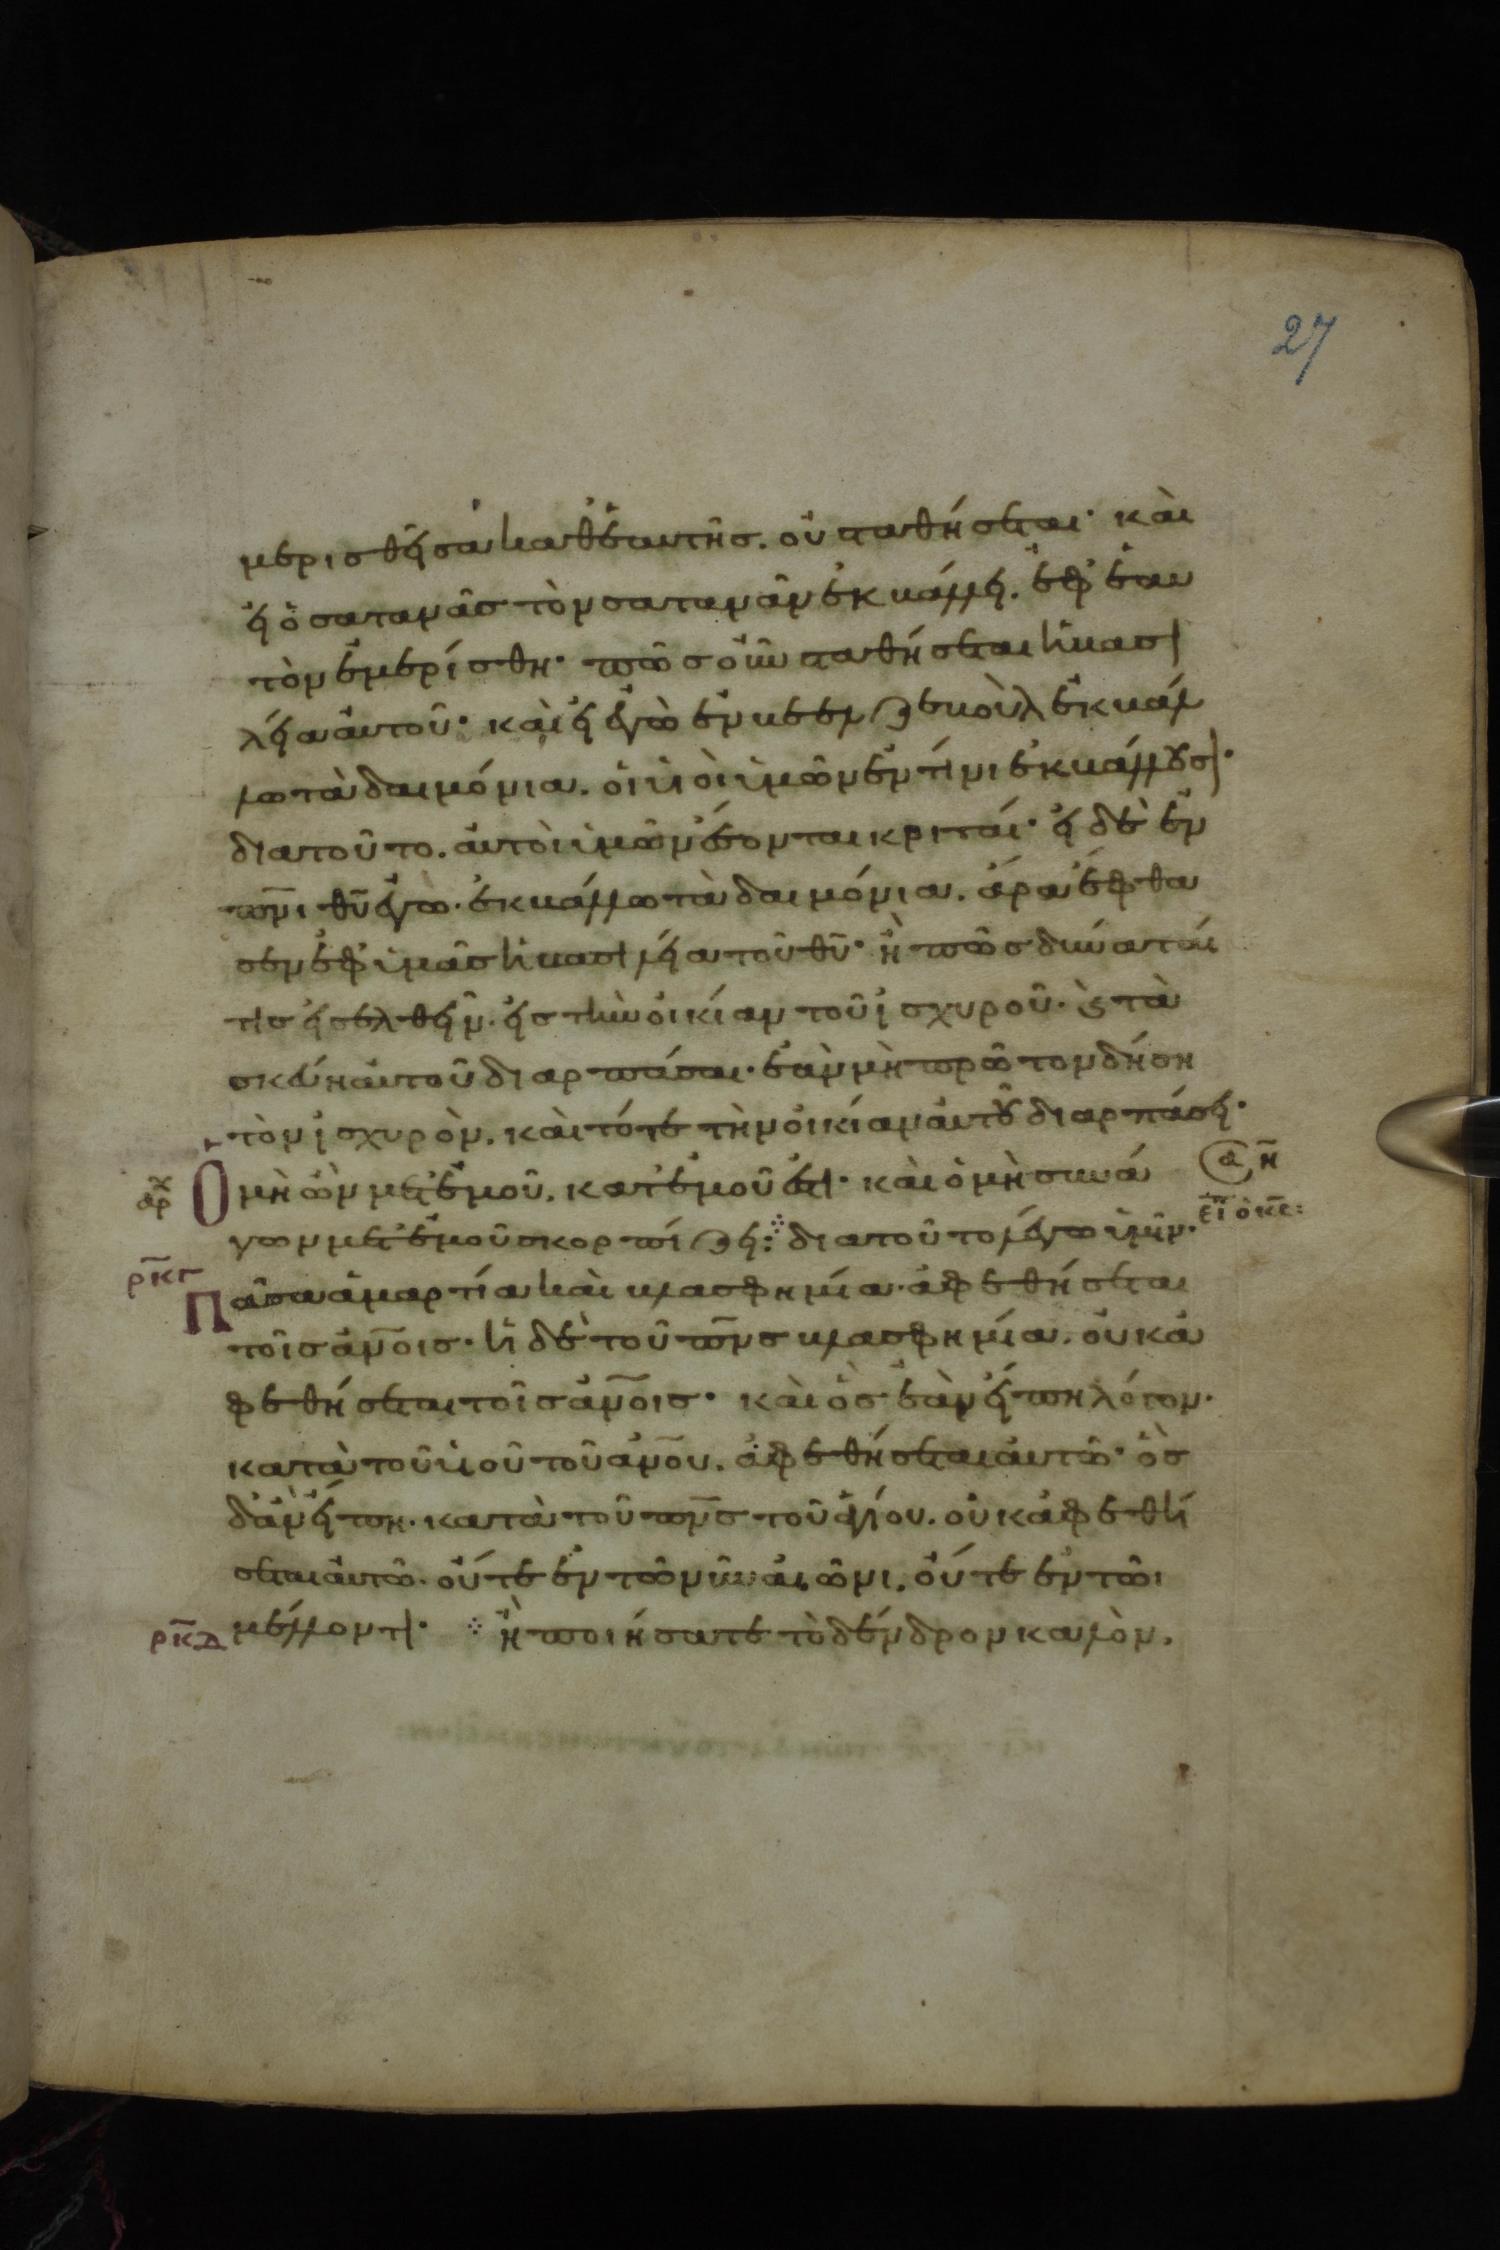 27
μερισθεῖσα καθ' ἑαυτῆς. οὐ σταθήσεται· καὶ
εἰ ὁ σατανᾶς τὸν σατανᾶν ἐκβάλλει. ἐφ' ἑαυ
τὸν ἐμερίσθη· πῶς οὖν σταθήσεται ἡ βασι
λεία αὐτοῦ· καὶ εἰ ἐγὼ ἐν βεελζεβοὺλ ἐκβάλ
λω τὰ δαιμόνια. οἱ υἱοὶ ὑμῶν ἐν τίνι ἐκβάλλουσι·
διατοῦτο. αὐτοὶ ὑμῶν ἔσονται κριταί· εἰ δὲ ἐν
πνι θυ ἐγὼ. ἐκβάλλω τὰ δαιμόνια. ἄρα ἔφθα
σεν ἐφ' ὑμᾶς ἡ βασιλεία τοῦ θυ· ἢ πῶς δύναταί
τις εἰσελθεῖν. εἰς τὴν οἰκίαν τοῦ ἰσχυροῦ. ϗ τὰ
σκεύη αὐτοῦ διαρπάσαι. ἐὰν μὴ πρῶτον δήση
τὸν ἰσχυρὸν. καὶ τότε τὴν οἰκίαν αὐτοῦ διαρπάσει·
αρχ Ὁ μὴ ὢν μετ' ἐμοῦ. κατ' ἐμοῦ ἐστι· καὶ ὁ μὴ συνά
γων μετ' ἐμοῦ σκορπίζει: διατοῦτο λέγω ὑμῖν.
εἶπ ὁ κς:
ρκγ Πᾶσα ἁμαρτία καὶ βλασφημία. ἀφεθήσεται
τοῖς ἀνοις. ἡ δὲ τοῦ πνς βλασφημία. οὐκ ἀ
φεθήσεται τοῖς ἀνοις· καὶ ὃς ἐὰν εἴπη λόγον.
κατὰ τοῦ υἱοῦ τοῦ ἀνου. ἀφεθήσεται αὐτῶ· ὃς
δ' ἂν εἴπη. κατὰ τοῦ πνς τοῦ ἁγίου. οὐκ ἀφεθή
σεται αὐτῶ. οὔτε ἐν τῶ νῦν αἰῶνι. οὔτε ἐν τῶι
ρκδ μέλλοντι· ἢ ποιήσατε τὸ δένδρον καλὸν.